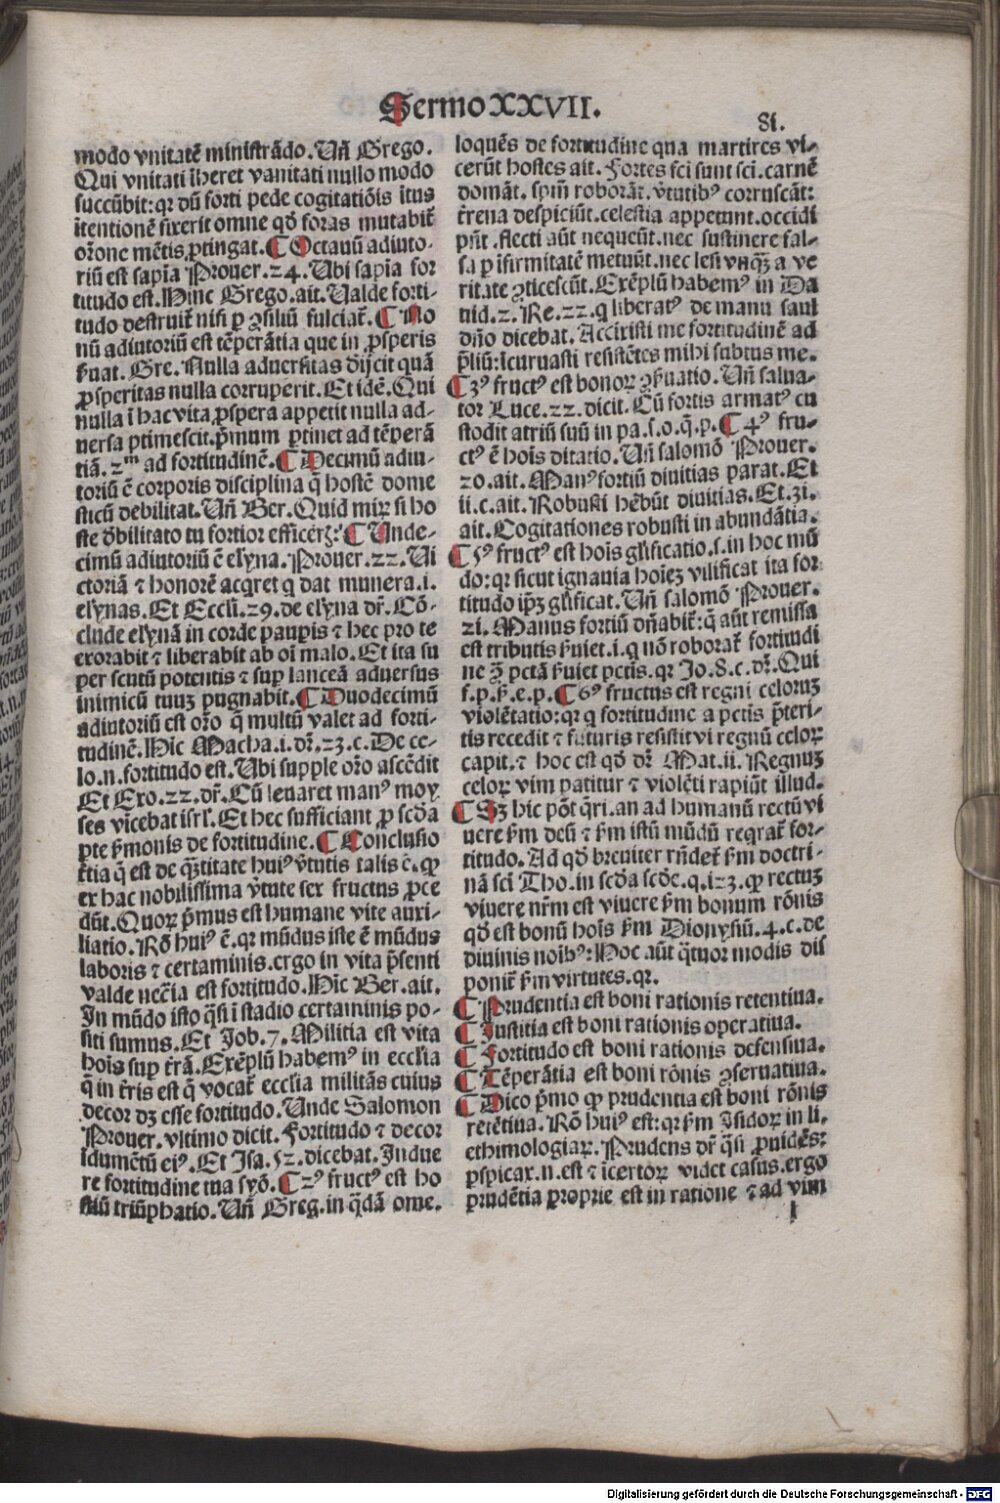 Sermo XXVII.
81.
modo vnitatē ministrādo. Vñ Grego.
Qui vnitati īheret vanitati nullo modo
succūbit: qꝛ dū forti pede cogitatiōis ītus
ītentionē fixerit omne qd̄ foras mutabit̄
or̄one mētis ꝑtingat. ¶ Octauū adiuto-
riū est sapīa Prouer. 24. Vbi sapīa for
titudo est. Hinc Grego. ait. Valde forti-
tudo destruit̄ nisi ꝑ ꝯsiliū fulciat̄. ¶ No
nū adiutoriū est tēperātia que in ꝓsperis
ẜuat. Gre. Nulla aduersitas dijcit quā
ꝓsperitas nulla corruperit. Et idē. Qui
nulla ī hac vita ꝓspera appetit nulla ad-
uersa ꝑtimescit. p̄mum ꝑtinet ad tēperā
tiā. 2ᵐ ad fortitudinē. ¶ Decimū adiu-
toriū ē corporis disciplina q̄ hostē dome
sticū debilitat. Vñ Ber. Quid miꝝ si ho
ste d̄bilitato tu fortior efficerꝭ? ¶ Vnde-
cimū adiutoriū ē elyna. Prouer. 22. Vi
ctoriā ⁊ honorē acq̄ret q̄ dat munera. i.
elynas. Et Eccli. 29. de elyna dr̄. Cō-
clude elynā in corde paupis ⁊ hec pro te
exorabit ⁊ liberabit ab oī malo. Et ita su
per scutū potentis ⁊ suꝑ lanceā aduersus
inimicū tuuꝫ pugnabit. ¶ Duodecimū
adiutoriū est or̄o q̄ multū valet ad forti-
tudinē. Hic Macha. i. dr̄. 23. c. De ce-
lo. n. fortitudo est. Vbi supple or̄o ascēdit
Et Exo. 22. dr̄. Cū leuaret manꝰ moy
ses vīcebat isrl̄. Et hec sufficiant ꝓ scd̄a
ꝑte ẜmonis de fortitudine. ¶ Conclusio
t̄tia q̄ est de q̄ꝫtitate huiꝰ v̄tutis talis ē. ꝙ
ex hac nobilissima v̄tute sex fructus ꝓce
dūt. Quoꝝ p̄mus est humane vite auxi-
liatio. Rō huiꝰ ē. qꝛ mūdus iste ē mūdus
laboris ⁊ certaminis. ergo in vita p̄senti
valde nec̄ia est fortitudo. Hic Ber. ait.
In mūdo isto q̄si ī stadio certaminis po-
siti sumus. Et Job. 7. Militia est vita
hoīs suꝑ t̄rā. Exēplū habemꝰ in ecclīa
q̄ in t̄ris est q̄ vocat̄ ecclīa militās cuius
decor dꝫ esse fortitudo. Vnde Salomon
Prouer. vltimo dicit. Fortitudo ⁊ decor
īdumētū eiꝰ. Et Isa. 52. dicebat. Indue
re fortitudine tua syō. ¶ 2ꝰ fructꝰ est ho
stiū triūphatio. Vñ Greg. in q̄dā ome.
loquēs de fortitudine qua martires vi-
cerūt hostes ait. Fortes sc̄i sunt sc̄i. carnē
domāt. spm̄ roborāt. v̄tutibꝰ corruscāt:
t̄rena despiciūt. celestia appetunt. occidi
pn̄t. flecti aūt nequeūt. nec sustinere fal-
sa ꝑ īfirmitatē metuūt. nec lesi vnqꝫ̄ a ve
ritate ꝯticescūt. Exēplū habemꝰ in Da
uid. 2. Re. 22. q̄ liberatꝰ de manu saul
dn̄o dicebat. Accixisti me fortitudinē ad
p̄liū: īcuruasti resistētes mihi subtus me.
¶ 3ꝰ fructꝰ est bonoꝝ ꝯẜuatio. Vñ salua-
tor Luce. 22. dicit. Cū fortis armatꝰ cu
stodit atriū suū in pa. s. o. q̄. p. ¶ 4ꝰ fru-
ctꝰ ē hoīs ditatio. Vñ salomō Prouer.
20. ait. Manꝰ fortiū diuitias parat. Et
ii. c. ait. Robusti hēbūt diuitias. Et. 31.
ait. Cogitationes robusti in abundātia.
¶ 5ꝰ fructꝰ est hoīs gl̄ificatio. s. in hoc mū
do: qꝛ sicut ignauia hoīeꝫ vilificat ita for
titudo ip̄ꝫ gl̄ificat. Vñ salomō Prouer.
21. Manus fortiū dn̄abit̄: q̄ aūt remissa
est tributis ẜuiet. i. q̄ nō roborat̄ fortitudi
ne ꝯ̄ pctā ẜuiet pctīs. qꝛ Jo. 8. c. dr̄. Qui
f. p. ẜ. e. p. ¶ 6ꝰ fructus est regni celoruꝫ
violētatio: qꝛ q̄ fortitudine a pctīs p̄teri-
tis recedit ⁊ futuris resistit vi regnū celoꝝ
capit. ⁊ hoc est qd̄ dr̄ Mat. ii. Regnuꝫ
celoꝝ vim patitur ⁊ violēti rapiūt illud.
¶ Sꝫ hic pōt q̄ri. an ad humanū rectū vi
uere ẜm deū ⁊ ẜm istū mūdū reqrat̄ for-
titudo. Ad qd̄ breuiter rn̄det̄ ẜm doctri-
nā sc̄i Tho. in scd̄a scd̄e. q. 123. ꝙ rectuꝫ
viuere nr̄m est viuere ẜm bonum rōnis
qd̄ est bonū hoīs ẜm Dionysiū. 4. c. de
diuinis noībꝰ: Hoc aūt q̄tuor modis dis
ponit̄ ẜm virtutes. qꝛ.
¶ Prudentia est boni rationis retentiua.
¶ Justitia est boni rationis operatiua.
¶ Fortitudo est boni rationis defensiua.
¶ Tēperātia est boni rōnis ꝯseruatiua.
¶ Dico p̄mo ꝙ prudentia est boni rōnis
retētiua. Rō huiꝰ est: qꝛ ẜm Isidoꝝ in li.
ethimologiaꝝ. Prudens dr̄ q̄si ꝓuidēs:
ꝑspicax. n. est ⁊ īcertoꝝ videt casus. ergo
prudētia proprie est in ratione ⁊ ad vim
l
Digitalisierung gefördert durch die Deutsche Forschungsgemeinschaft - DFG